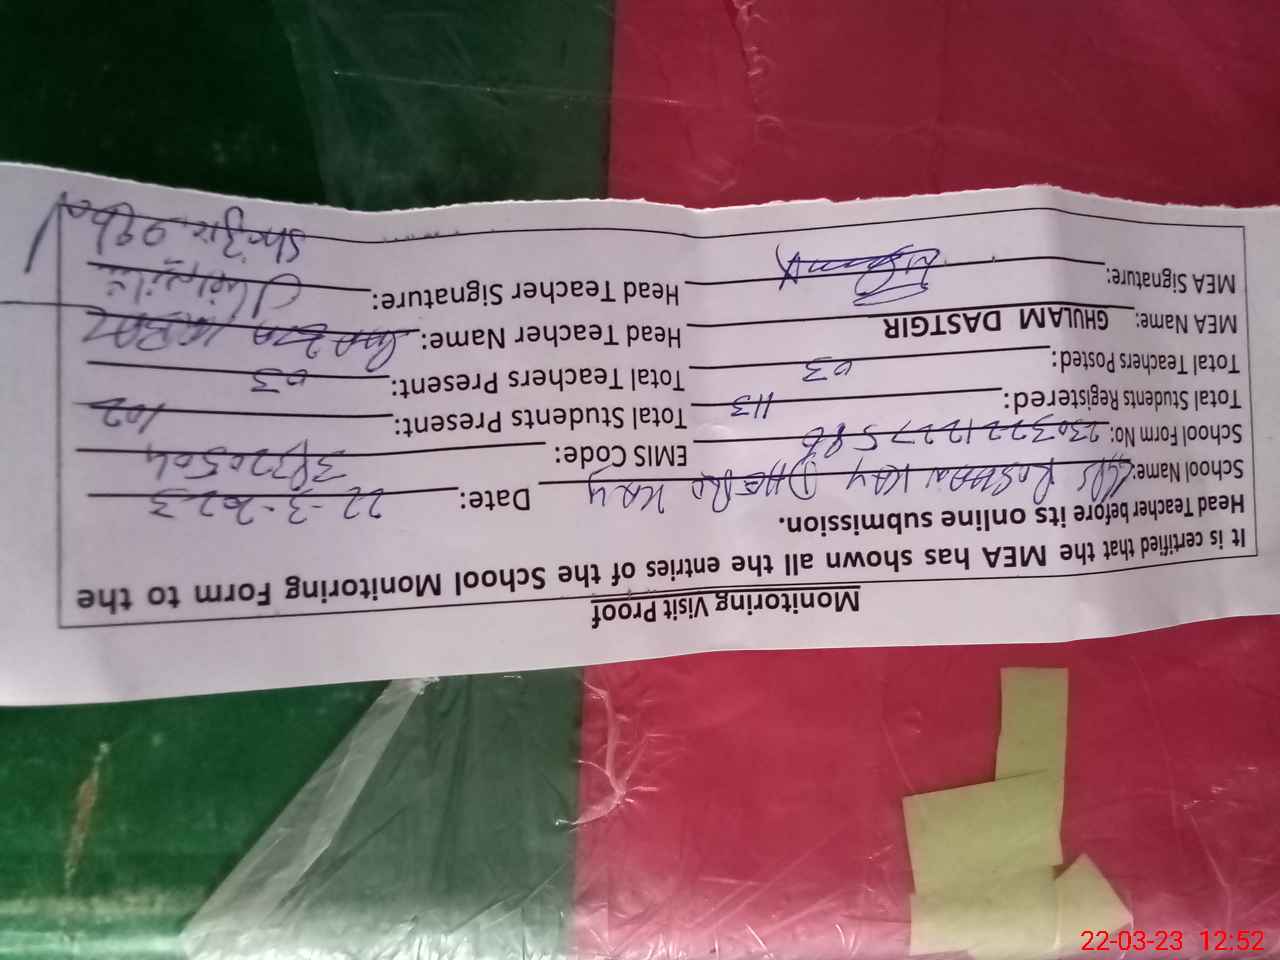 Monitoring Visit Proof
It is certified that the MEA has shown all the entries of the School Monitoring Form to the
Head Teacher before its online submission.
School Name: GPS ROSHAN KAY DHARO KAY Date: 22-3-2023
School Form No: EMIS Code:
Total Students Registered: 113 Total Students Present: 102
Total Teachers Posted: 03 Total Teachers Present: 03
MEA Name: GHULAM DASTGIR Head Teacher Name: IQBAL
MEA Signature: Head Teacher Signature:
22-03-23 12:52